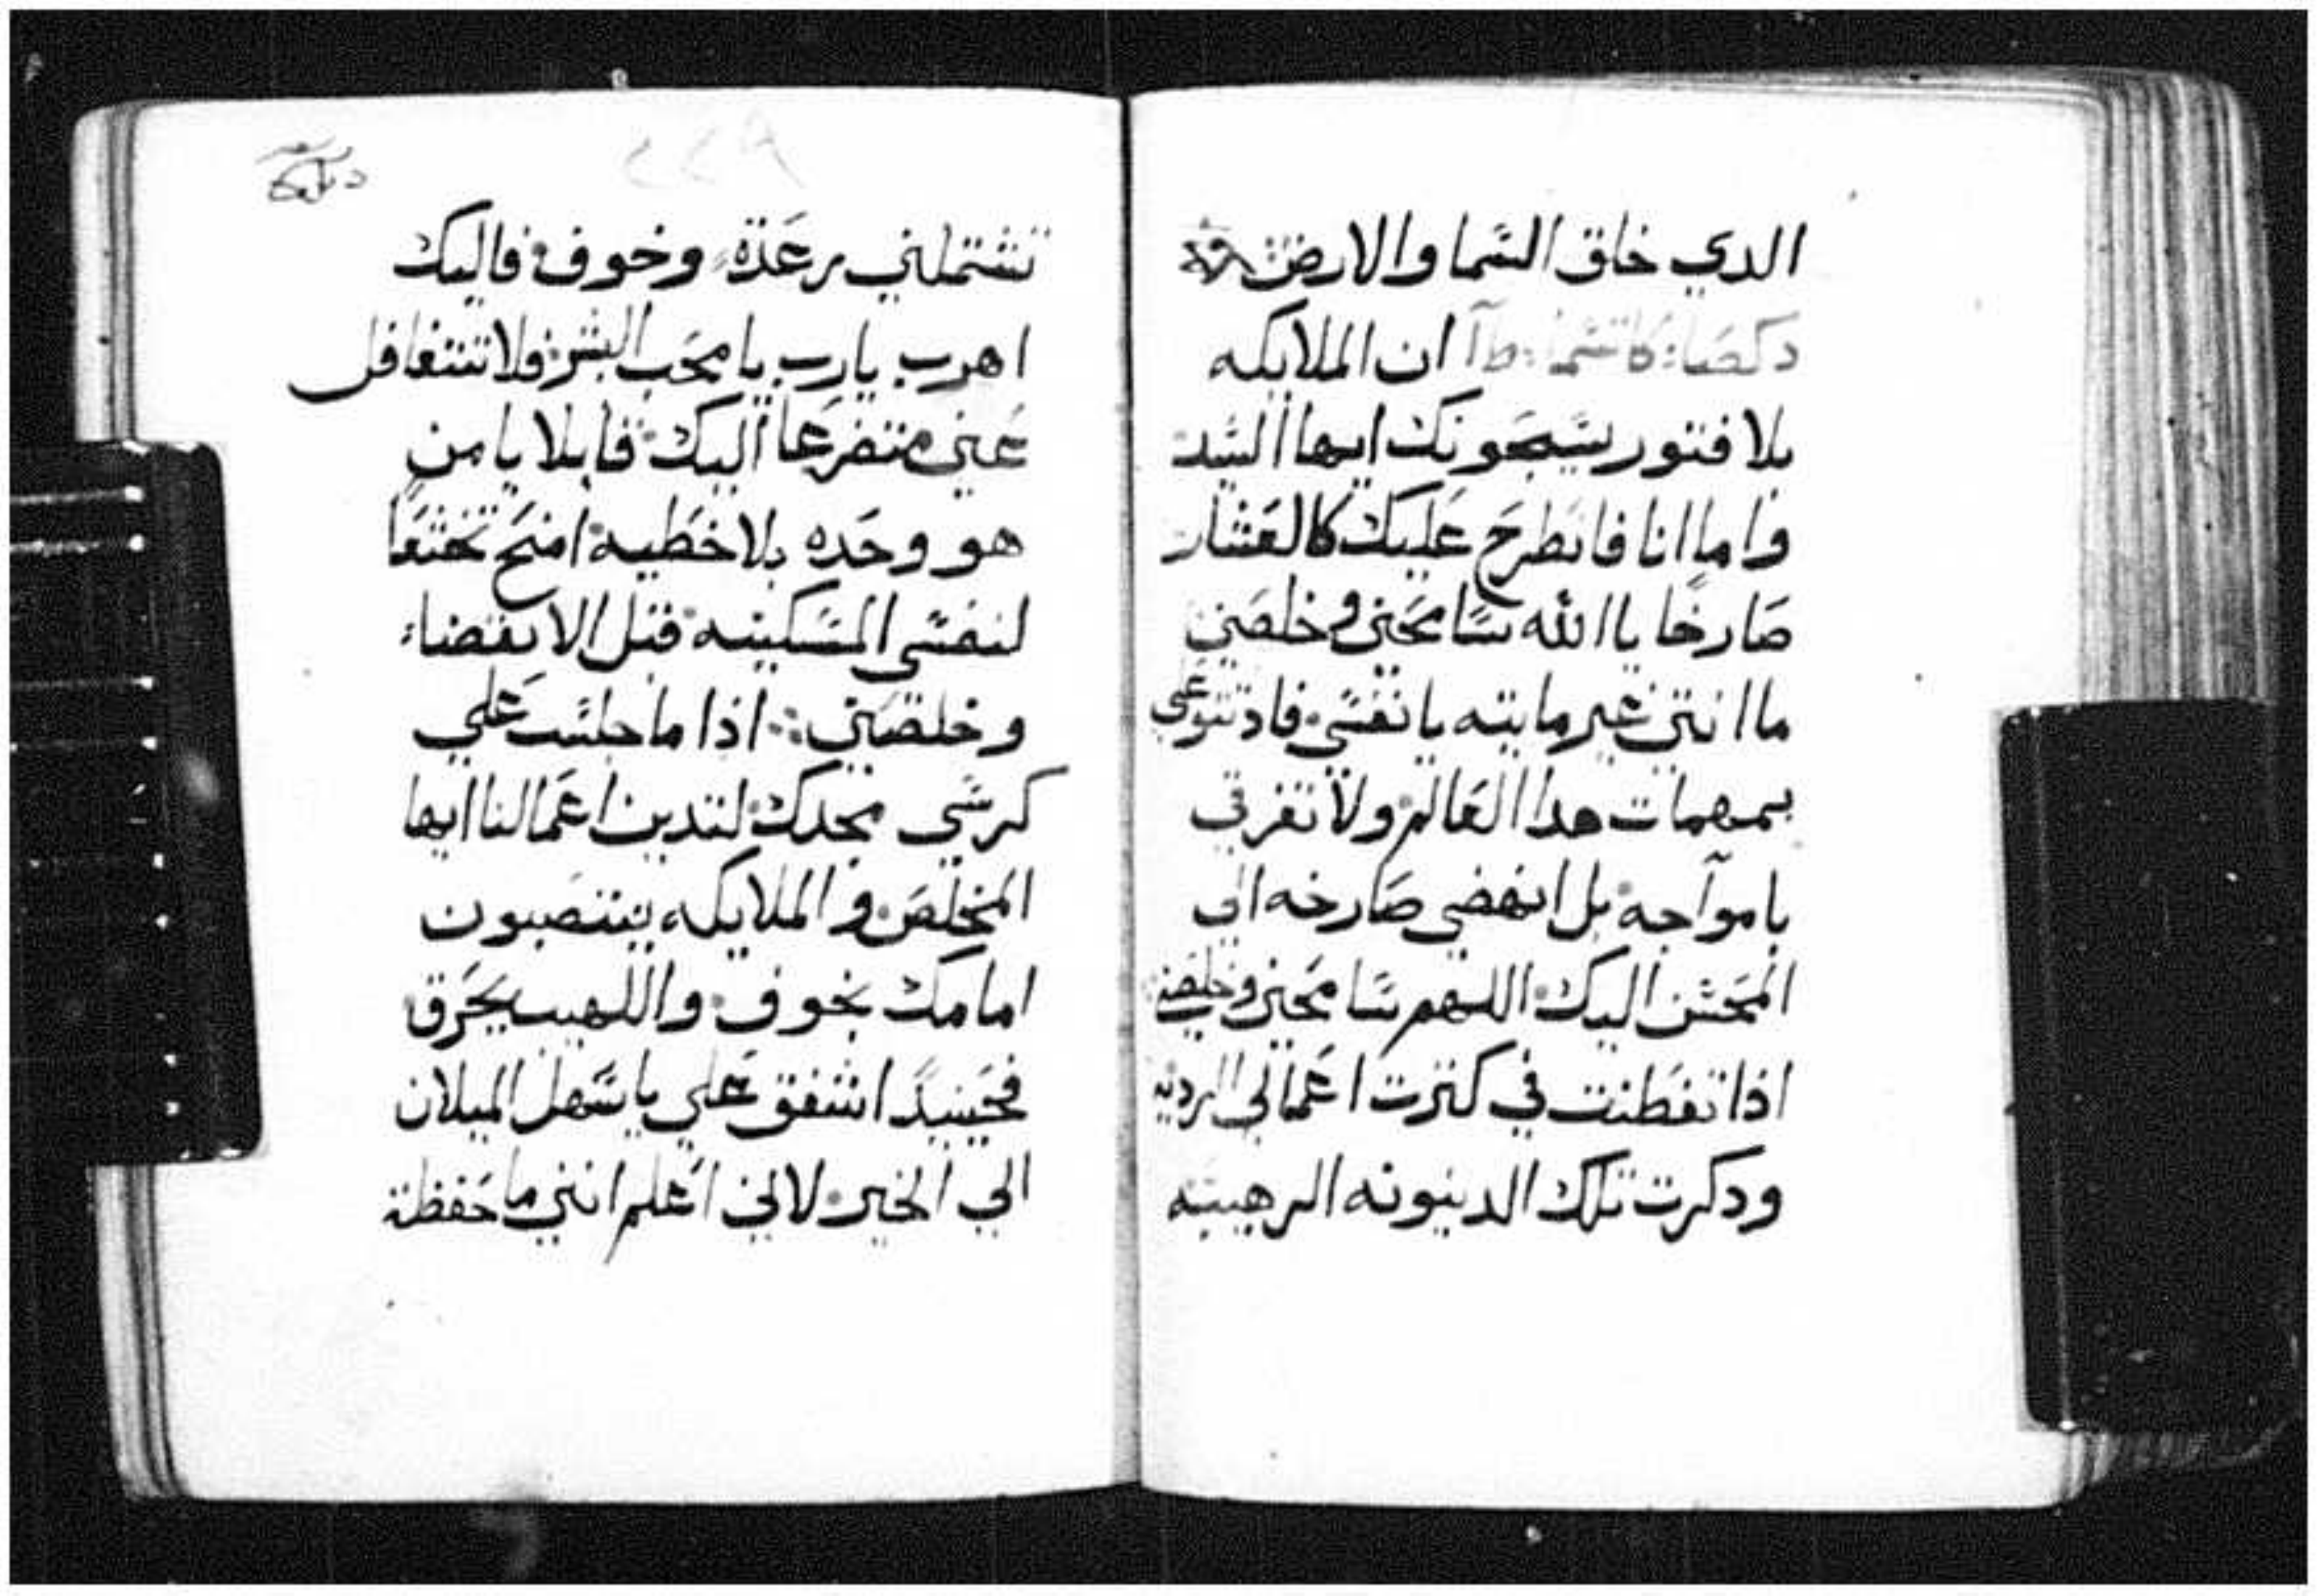 الدي خلق السما والارض
دكصا: كاتسما: طا ان الملايكه
بلا فتور يسبحونك ايها السيد
واما انا فانطرح عليك كالعشار
صارخا يا الله سامحني وخلصني
ما انتي غير مايته يا نفسي فاد تتوعلي
بمهمات هدا العالم ولا تغرقي
بامواجه بل انهضي صارخه الي
المحسن اليك اللهم سامحني وخلصني
اذا تفطنت في كترت اعمالي الرديه
ودكرت تلك الدينونه الرهيبه
٢٢٨
تشتملني رعدة وخوف فاليك
اهرب يارب يا محب البشر فلا تتغافل
عني متضرعا اليك قايلا يا من
هو وحده بلا خطية امنح تخشعا
لنفسي المسكينه قبل الانقضاء
وخلصني اذا ما جلست علي
كرسي مجدك لتدين اعمالنا ايها
المخلص والملايكه ينتصبون
امامك بخوف واللهيب يحرق
فحينيدً اشفق علي يا سهل الميلان
الي الخير لاني اعلم انني ما حفظت